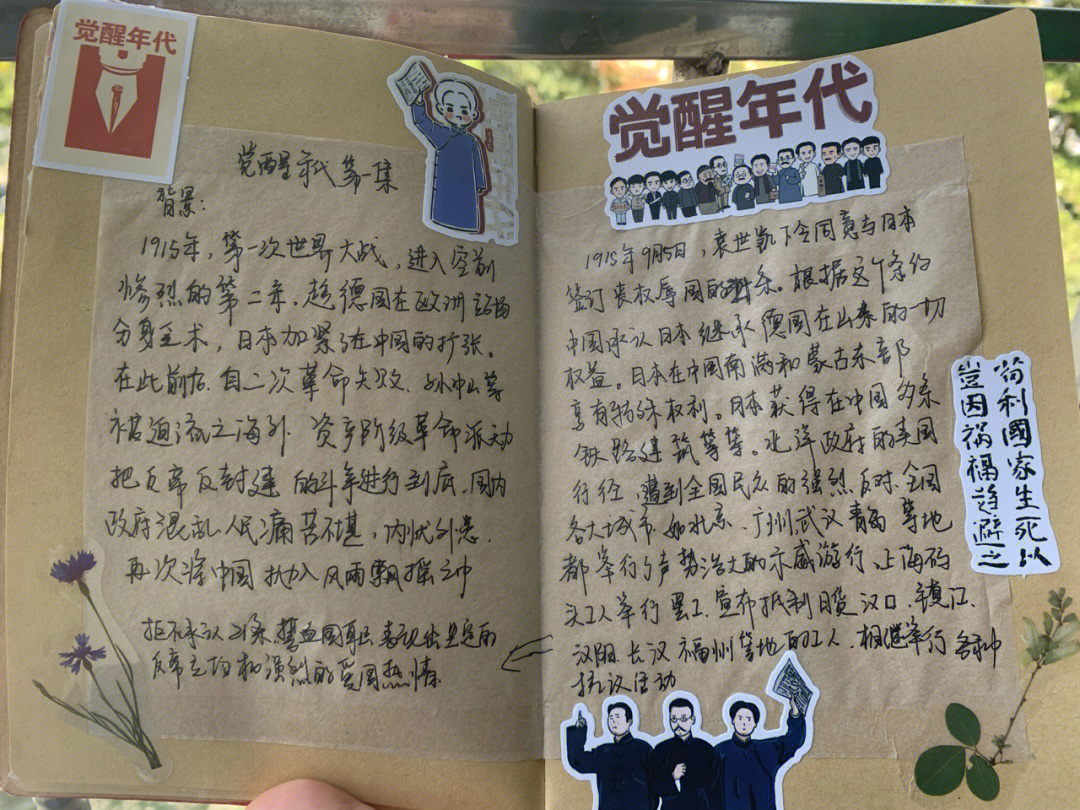 觉醒年代
觉醒年代第一集
背景：
1915年，第一次世界大战，进入空前
惨烈的第二年。趁德国在欧洲战场
分身乏术，日本加紧了在中国的扩张。
在此前后，自二次革命失败，孙中山等
被迫流亡海外，资产阶级革命派无力
把反帝反封建的斗争进行到底，国内
政府混乱，人民痛苦不堪，内忧外患，
再次将中国抛入风雨飘摇之中
拒不承认21条，誓血国耻 表现出坚定的
反帝立场和强烈的爱国热情
觉醒年代
1915年9月5日，袁世凯下令同意与日本
签订丧权辱国的条。根据这个条约
中国承认日本继承德国在山东的一切
权益。日本在中国南满和蒙古东部
享有特殊权利。日本获得在中国多条
铁路建筑等等。北洋政府的卖国
行径，遭到全国民众的强烈反对，全国
各大城市如北京、广州武汉青岛等地
都举行了声势浩大的示威游行，上海码
头工人举行罢工，宣布抵制日货 汉口、镇江、
汉阳、长汉 福州等地的工人，相继举行各种
抗议活动
苟利國家生死以
豈因祸福趋避之